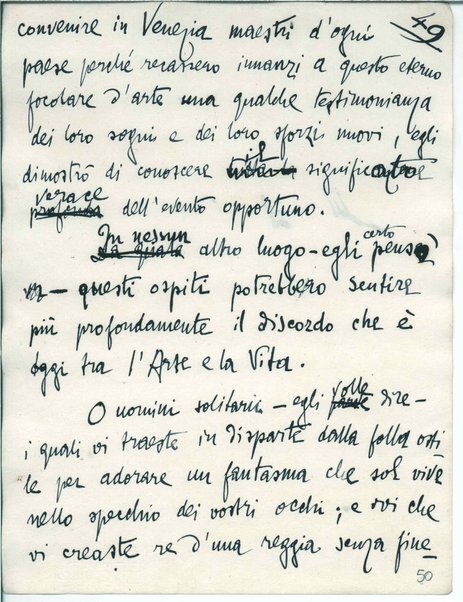 49
convenire in Venezia maestri d'ogni
paese perché recassero innanzi a questo eterno
focolare d'arte una qualche testimonianza
dei loro sogni e dei loro sforzi nuovi, egli
dimostrò di conoscere il significato
verace profondo dell'evento opportuno.
In nessun altro luogo - egli certo pensò
- questi ospiti potrebbero sentire
più profondamente il discordo che è
oggi tra l'Arte e la Vita.
O uomini solitarii - egli volle dire -
i quali vi traeste in disparte dalla folla osti
le per adorare un fantasma che sol vive
nello specchio dei vostri occhi; e voi che
vi creaste re d'una reggia senza fine
50